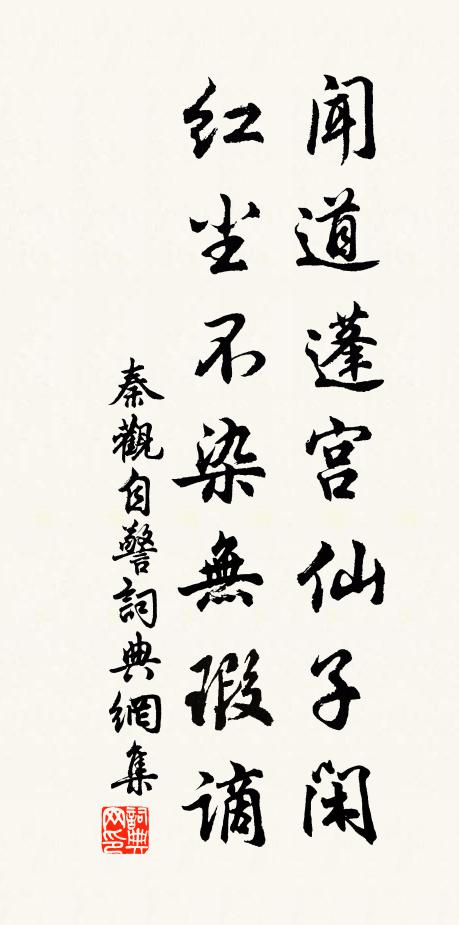 闻道蓬宫仙子闲
红尘不染無瑕謫
秦觀自警詞典網集
詞典网印